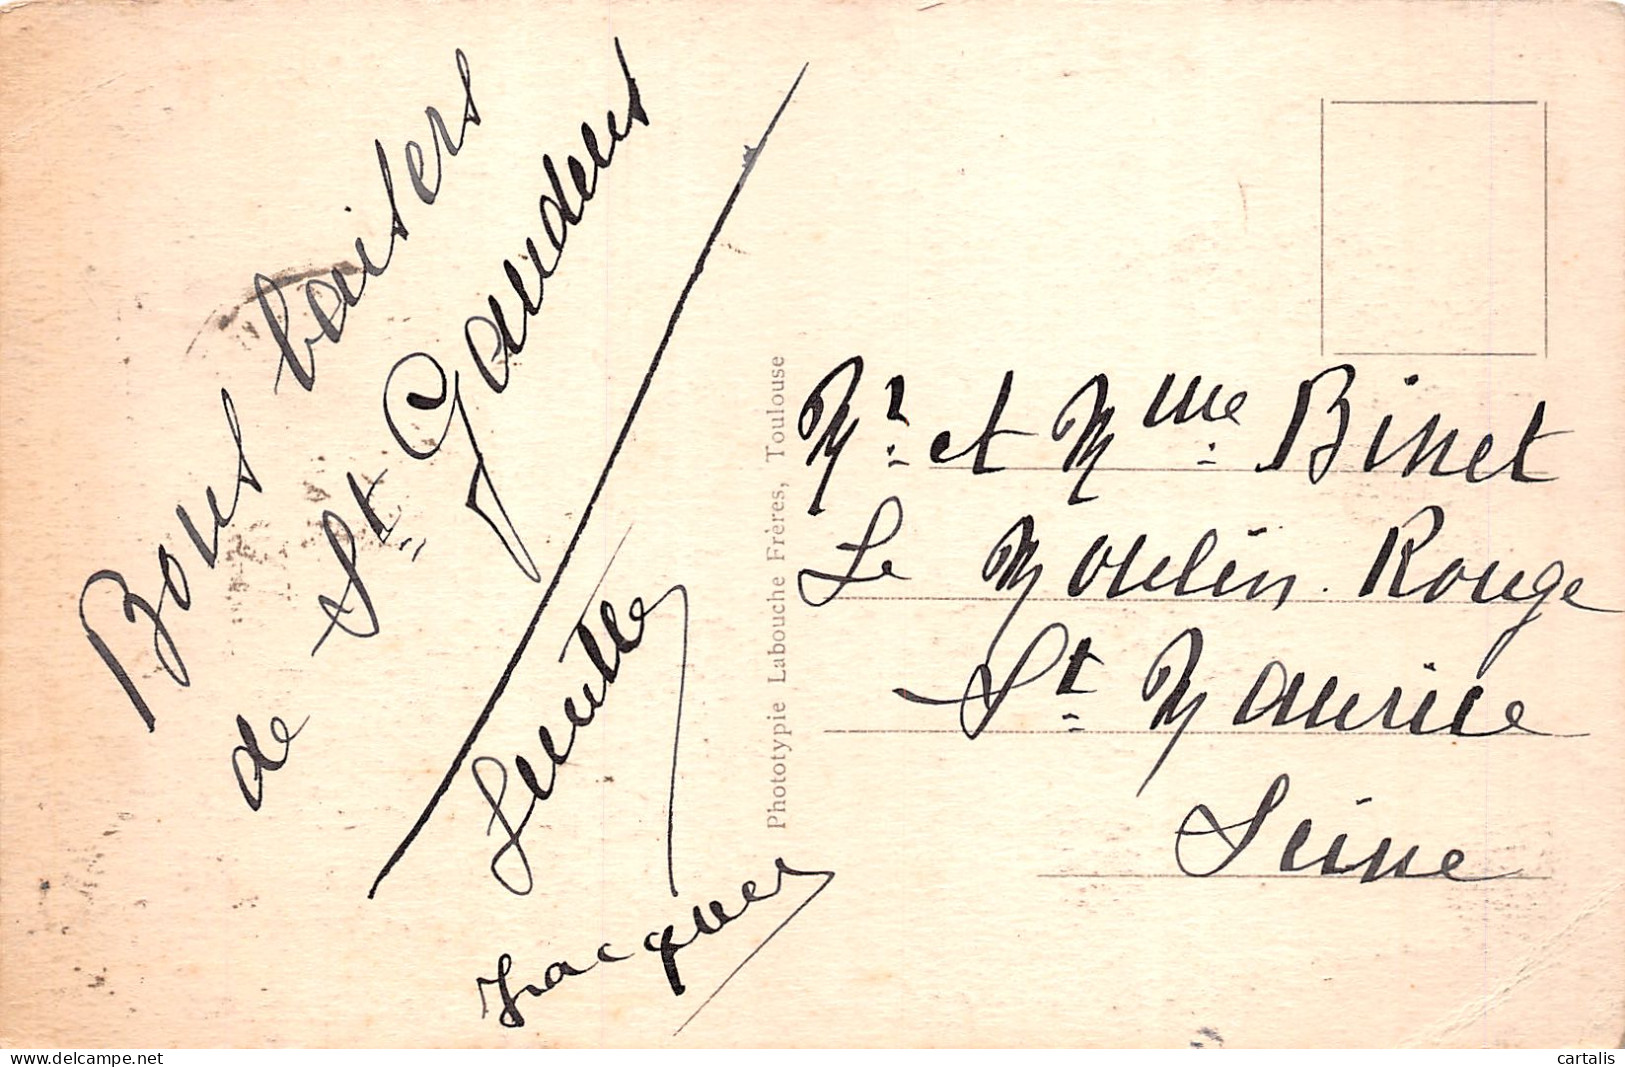 Bons baisers
de St. Gaudens
Jacques
Phototypie Labouche Frères, Toulouse
Mr. et Mme. Binet
Le Moulin Rouge
St. Maurice
Seine
www.delcampe.net
cartalis